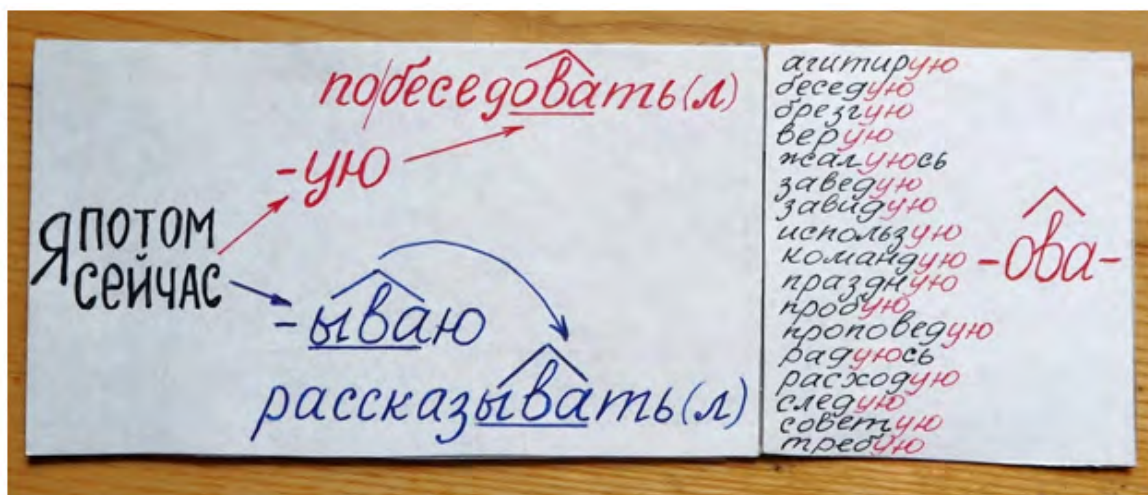 побеседовать(л)
-ую
Я ПОТОМ
СЕЙЧАС
-ываю
рассказывать(л)
агитирую
беседую
брезгую
верую
жалуюсь
заведую
завидую
использую
командую
праздную
пробую
проповедую
радуюсь
расходую
следую
советую
требую
-ова-